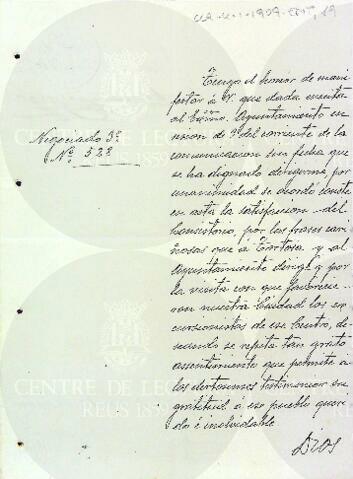 Tengo el honor de mani
festar á V. que dada cuenta
al Excmo. Ayuntamiento en
sesion de 9 del corriente de la
comunicacion sin fecha que
se ha dignado dirigirme por
unanimidad se acordó conste
en acta la satisfaccion del
Consistorio, por las frases cari
ñosas que á Tortosa y al
Ayuntamiento dirige y por
la visita con que favorecie-
ron nuestra Ciudad los ex
cursionistas de ese Centro, de-
seando se repita tan grato
que permite á
los dertosenses testimoniar su
gratitud á ese pueblo queri
do é inolvidable.
Dios
Negociado 3º
Nº 528
CENTRE DE LECTURA
REUS 1859